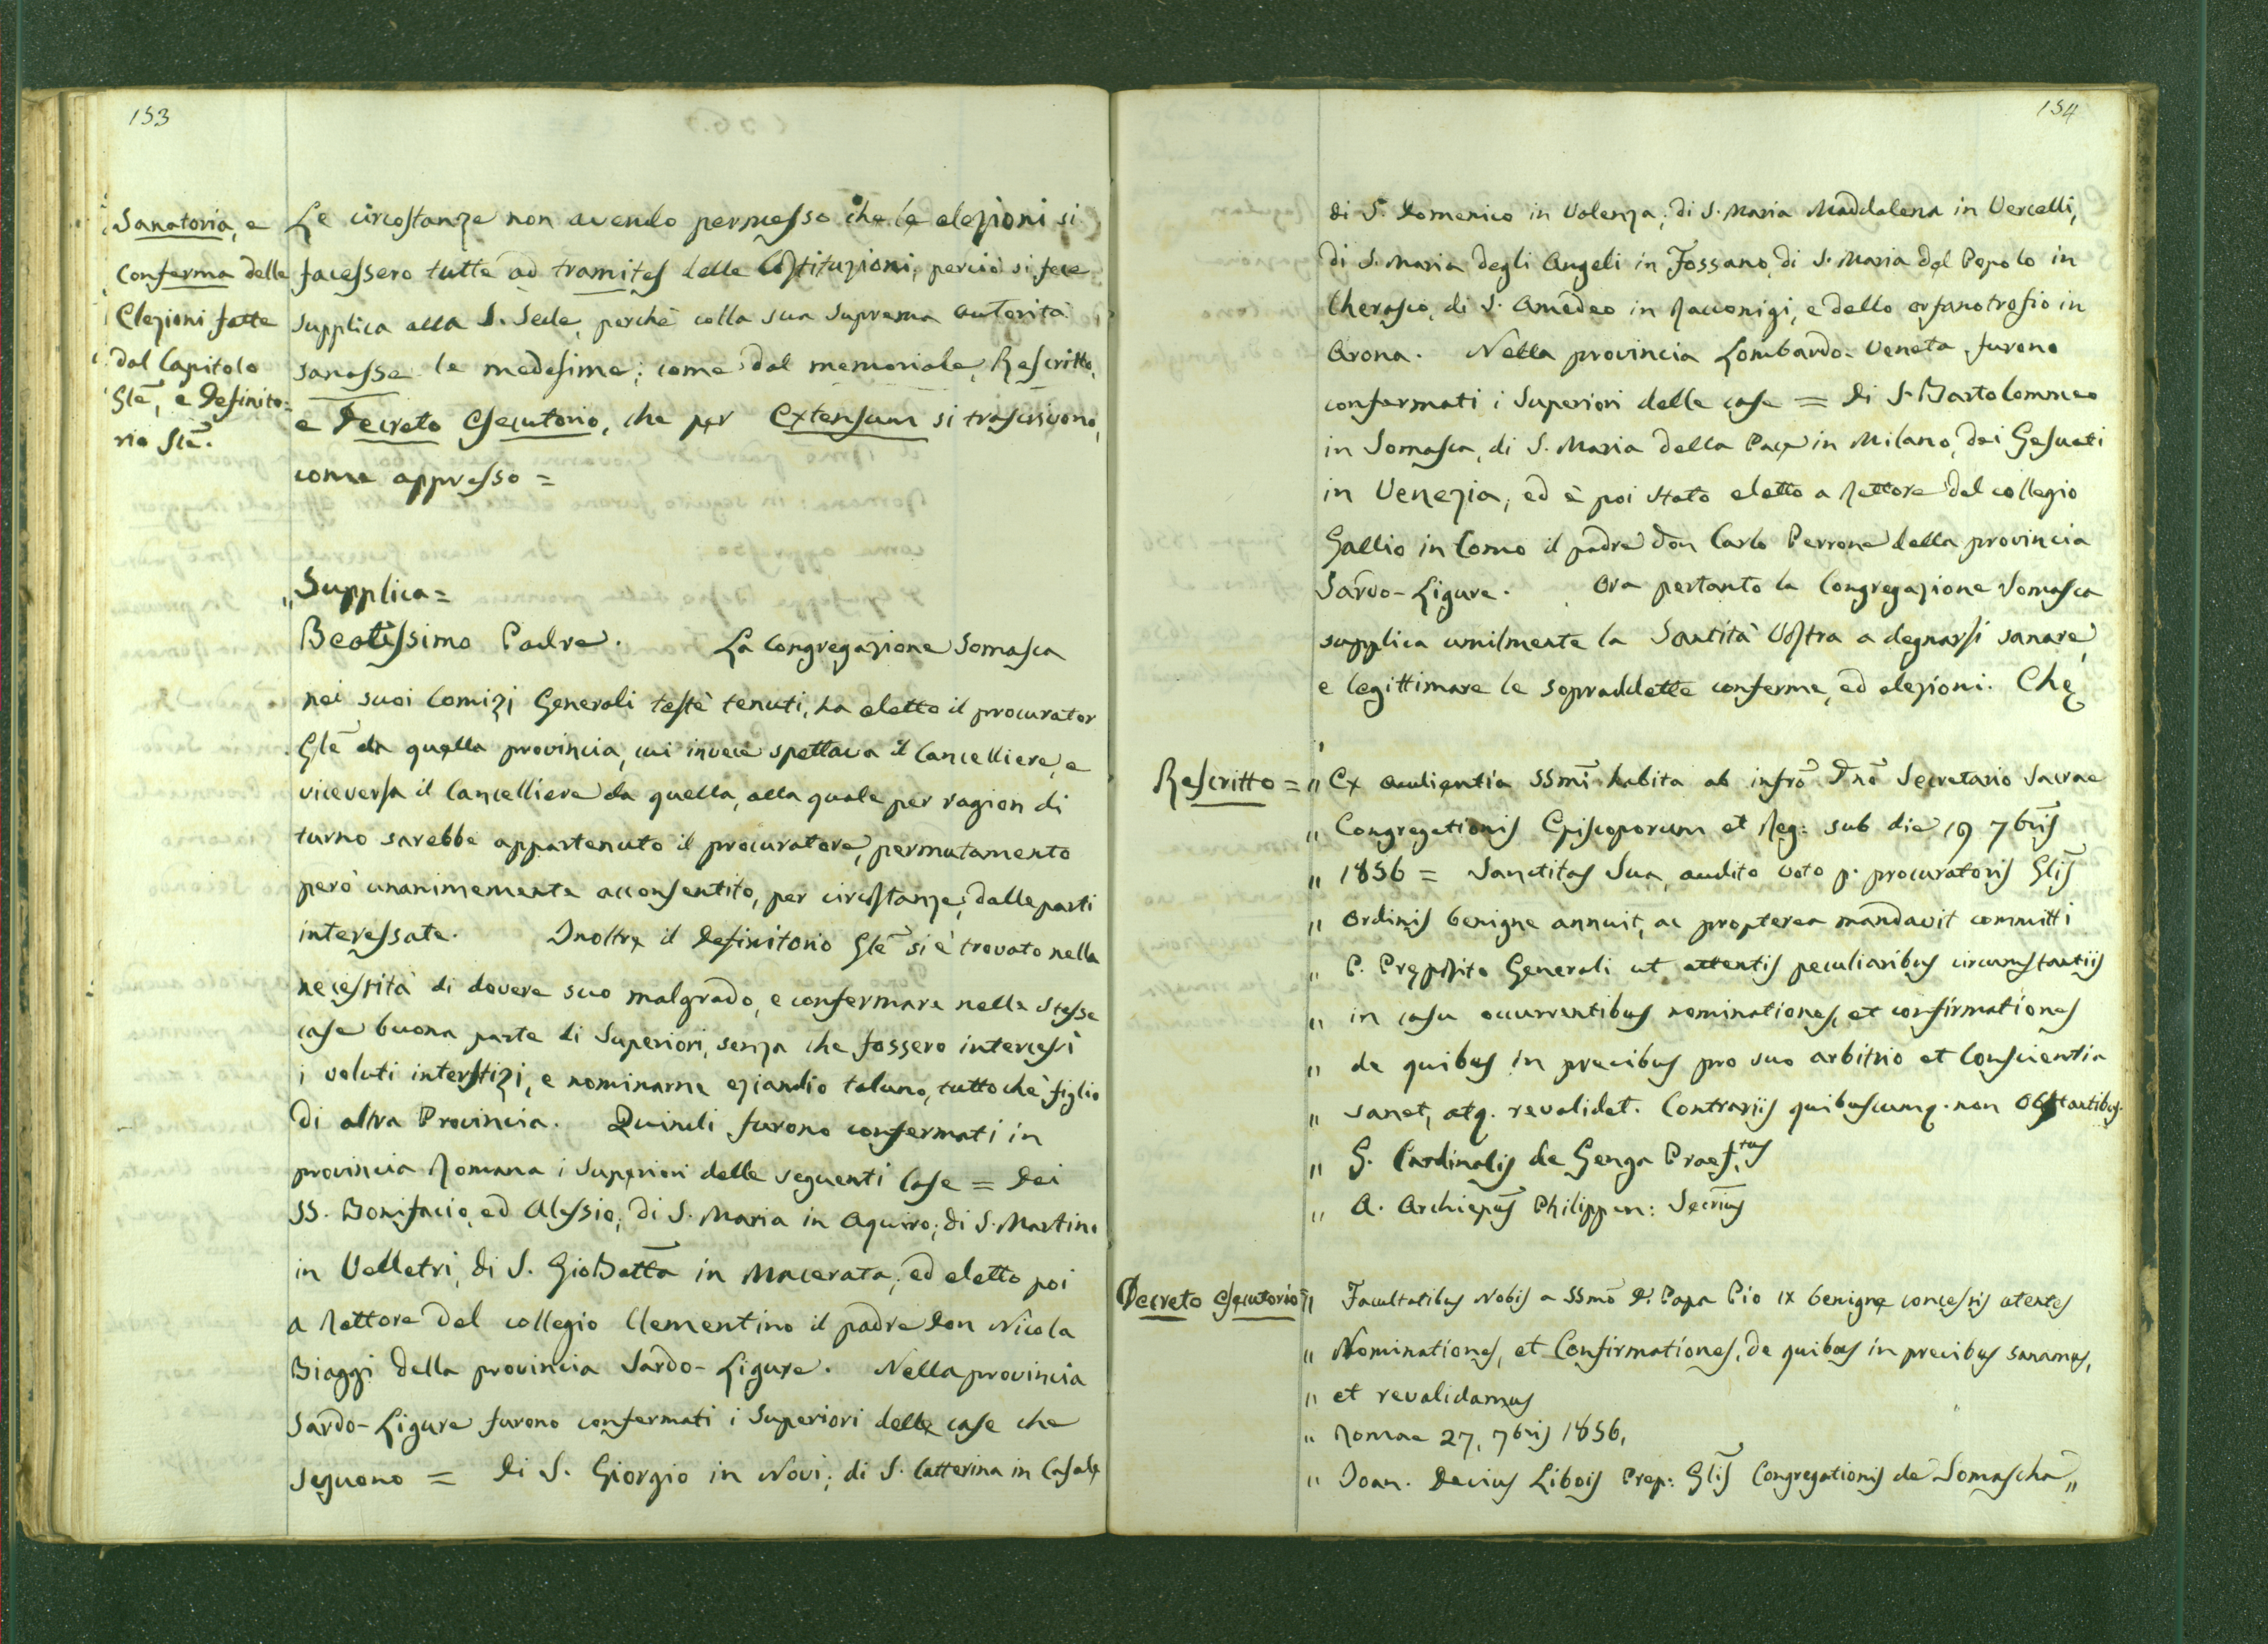 153
Sanatoria, e
Conferma delle
Elezioni fatte
dal Capitolo
Glē, e Definito=
rio Glē.
Le circostanze non avendo permesso che le elezioni si
facessero tutte ad tramites delle Costituzioni, perciò si fece
supplica alla S. Sede, perchè colla sua suprema autorità
sanasse le medesime; come dal memoriale, Rescritto,
e Decreto Esecutorio, che per extensum si trascrivono,
come appresso =
„ Supplica =
Beatissimo Padre. La Congregazione Somasca
nei suoi Comizj Generali testè tenuti, ha eletto il procurator
Glē da quella provincia, cui invece spettava il Cancelliere, e
viceversa il Cancelliere da quella, alla quale per ragion di
turno sarebbe appartenuto il procuratore, permutamento
però unanimemente acconsentito, per circostanze, dalle parti
interessate. Inoltre il Definitorio Glē si è trovato nella
necessità di dovere suo malgrado, e confermare nelle stesse
case buona parte di Superiori, senza che fossero intercessi
i voluti interstizj, e nominarne eziandio taluno, tuttochè figlio
di altra Provincia. Quindi furono confermati in
provincia Romana i Superiori delle seguenti Case = Dei
SS. Bonifacio, ed Alessio; di S. Maria in Aquiro; di S. Martino
in Velletri, di S. GioBattā in Macerata; ed eletto poi
a Rettore del collegio Clementino il padre Don Nicola
Biaggi della provincia Sardo-Ligure. Nella provincia
Sardo-Ligure furono confermati i Superiori delle case che
seguono = Di S. Giorgio in Novi; di S. Catterina in Casale
154
di S. Domenico in Valenza; di S. Maria Maddalena in Vercelli,
di S. Maria degli Angeli in Fossano, di S. Maria del Popolo in
Cherasco, di S. Amedeo in Racconigi, e dello orfanotrofio in
Arona. Nella provincia Lombardo-Veneta furono
confermati i Superiori delle case = Di S. Bartolommeo
in Somasca, di S. Maria della Pace in Milano, dei Gesuati
in Venezia, ed è poi stato eletto a Rettore del collegio
Gallio in Como il padre Don Carlo Perrone della provincia
Sardo-Ligure. Ora pertanto la Congregazione Somasca
supplica umilmente la Santità Vostra a degnarsi sanare,
e legittimare le sopraddette conferme, ed elezioni. Che
Rescritto = „ Ex audientia SSmī habita ab infrō Dnō Secretario Sacrae
„ Congregationis Episcoporum et Reg: sub die 19 7brīs
„ 1856 = Sanctitas Sua, audito voto p. procuratoris Glīs
„ Ordinis benigne annuit, ac propterea mandavit committi
„ P. Preposito Generali ut attentis peculiaribus circumstantiis
„ in casu occurrentibus nominationes, et confirmationes
„ de quibus in precibus pro suo arbitrio et Conscientia
„ sanet, atq. revalidet. Contrariis quibuscumq. non Obstantibus.
„ G. Cardinalis de Genga Praef.tus
„ A. Archiepūs Philippen: Secrīus
Decreto Esecutorio = „ Facultatibus Nobis a SSmō D. Papa Pio IX benigne concessis utentes
„ Nominationes, et Confirmationes, de quibus in precibus sanamus,
„ et revalidamus
„ Romae 27, 7bris 1856,
„ Joan. Decius Libois Prep: Glīs Congregationis de Somascha „